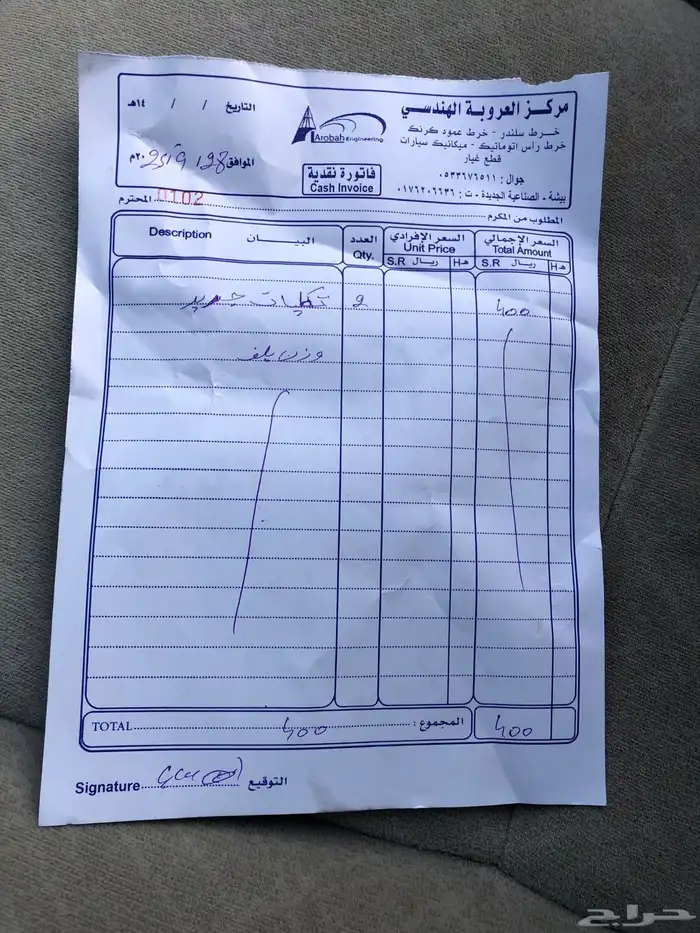 مركز العروبة الهندسي
خرط سلندر - خرط عمود كرنك
خرط راس اتوماتيك - ميكانيك سيارات
قطع غيار
جوال : ٠٥٣٣٦٧٦٥١١
بيشة - الصناعية الجديدة - ت : ٠١٧٦٢٠٦٦٣٦
Arobah Engineering
فاتورة نقدية
Cash Invoice
التاريخ / / ١٤هـ
الموافق 28 / 9 / 25 ٢٠م
0102
المطلوب من المكرم المحترم
السعر الإجمالي Total Amount
السعر الإفرادي Unit Price
العدد Qty.
البيان Description
هـ H ريال S.R
هـ H ريال S.R
400 2 جديد
وزن بلف
TOTAL 400 المجموع : 400
Signature التوقيع
حراج